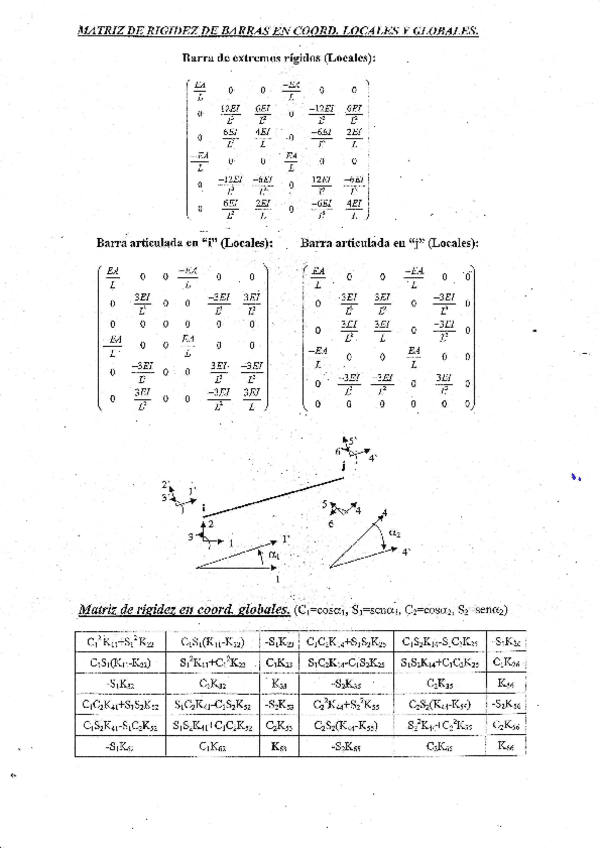 MATRIZ DE RIGIDEZ DE BARRAS EN COORD. LOCALES Y GLOBALES.
Barra de extremos rígidos (Locales):
EA/L 0 0 -EA/L 0 0
0 12EI/L³ 6EI/L² 0 -12EI/L³ 6EI/L²
0 6EI/L² 4EI/L 0 -6EI/L² 2EI/L
-EA/L 0 0 EA/L 0 0
0 -12EI/L³ -6EI/L² 0 12EI/L³ -6EI/L²
0 6EI/L² 2EI/L 0 -6EI/L² 4EI/L
Barra articulada en “i” (Locales): Barra articulada en “j” (Locales):
EA/L 0 0 -EA/L 0 0
0 3EI/L³ 0 0 -3EI/L³ 3EI/L²
0 0 0 0 0 0
-EA/L 0 0 EA/L 0 0
0 -3EI/L³ 0 0 3EI/L³ -3EI/L²
0 3EI/L² 0 0 -3EI/L² 3EI/L
EA/L 0 0 -EA/L 0 0
0 3EI/L³ 3EI/L² 0 -3EI/L³ 0
0 3EI/L² 3EI/L 0 -3EI/L² 0
-EA/L 0 0 EA/L 0 0
0 -3EI/L³ -3EI/L² 0 3EI/L³ 0
0 0 0 0 0 0
5'
6' 4'
j
2'
3' 1'
i
2
3 1
1'
α₁
1
5 4
6
4
α₂
4'
Matriz de rigidez en coord. globales. (C₁=cosα₁, S₁=senα₁, C₂=cosα₂, S₂=senα₂)
C₁²K₁₁+S₁²K₂₂ C₁S₁(K₁₁-K₂₂) -S₁K₂₃ C₁C₂K₁₄+S₁S₂K₂₅ C₁S₂K₁₄-S₁C₂K₂₅ -S₁K₂₆
C₁S₁(K₁₁-K₂₂) S₁²K₁₁+C₁²K₂₂ C₁K₂₃ S₁C₂K₁₄-C₁S₂K₂₅ S₁S₂K₁₄+C₁C₂K₂₅ C₁K₂₆
-S₁K₃₂ C₁K₃₂ K₃₃ -S₂K₃₅ C₂K₃₅ K₃₆
C₁C₂K₄₁+S₁S₂K₅₂ S₁C₂K₄₁-C₁S₂K₅₂ -S₂K₅₃ C₂²K₄₄+S₂²K₅₅ C₂S₂(K₄₄-K₅₅) -S₂K₅₆
C₁S₂K₄₁-S₁C₂K₅₂ S₁S₂K₄₁+C₁C₂K₅₂ C₂K₅₃ C₂S₂(K₄₄-K₅₅) S₂²K₄₄+C₂²K₅₅ C₂K₅₆
-S₁K₆₂ C₁K₆₂ K₆₃ -S₂K₆₅ C₂K₆₅ K₆₆